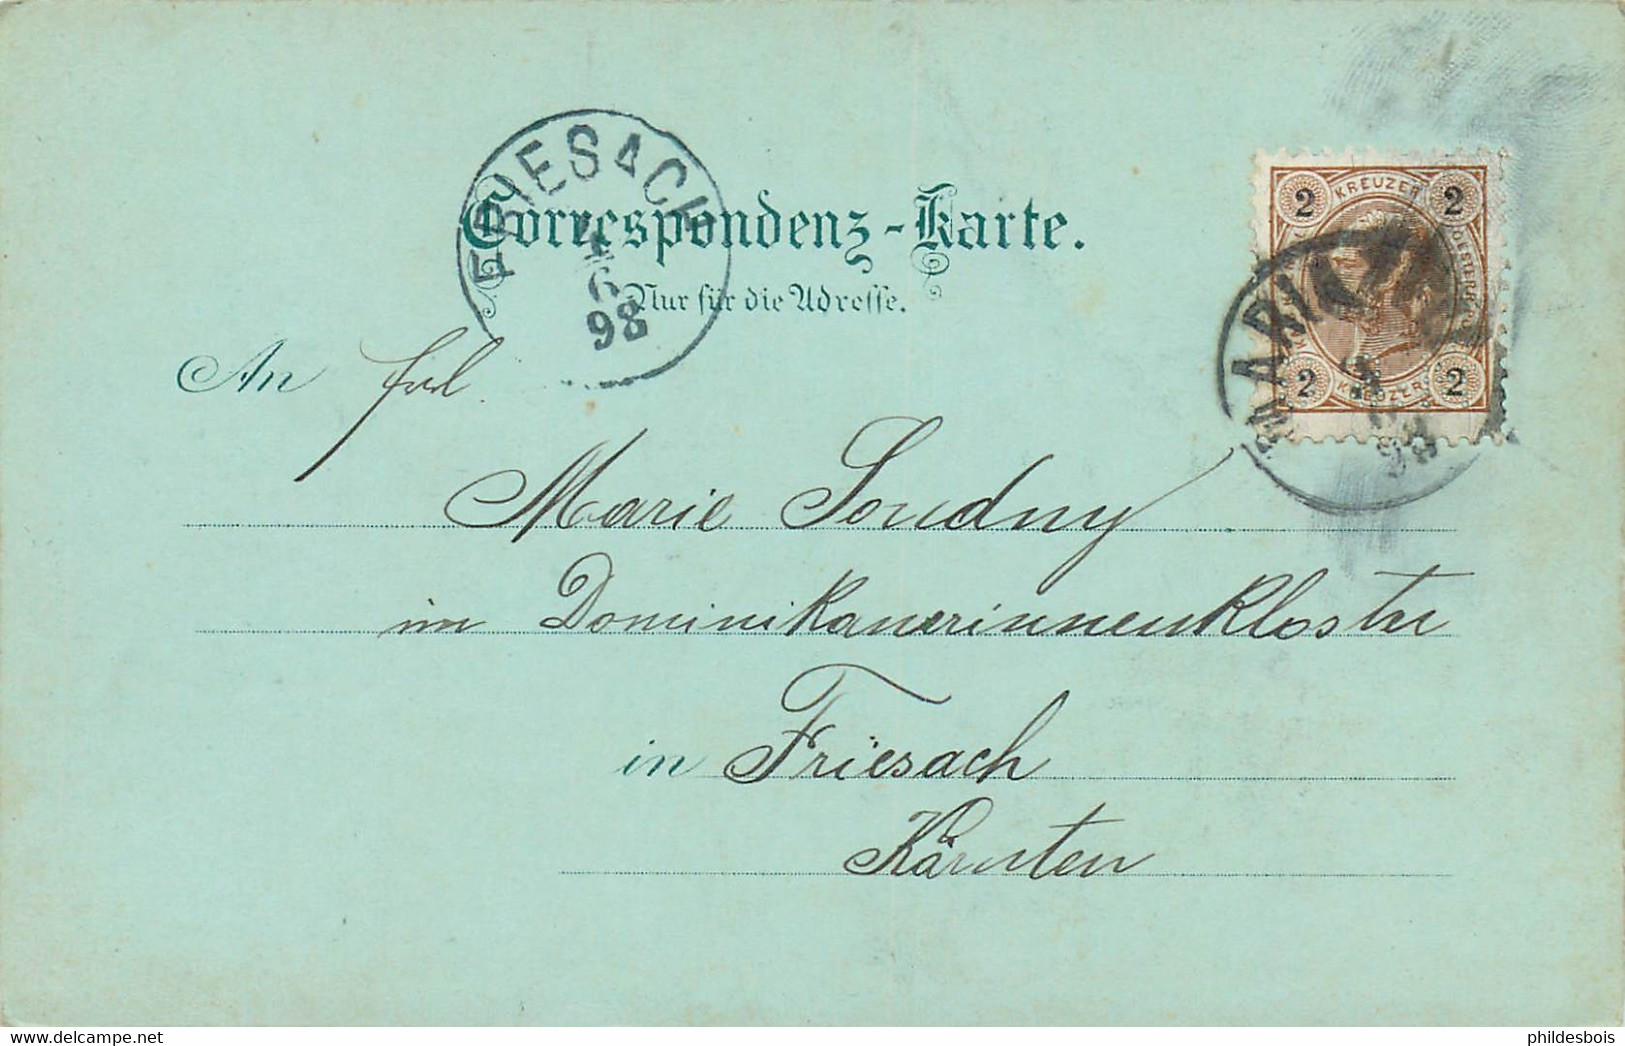 FRIESACH
6
98
Correspondenz-Karte.
Nur für die Adresse.
2 KREUZER 2
2 KREUZER 2
MARIAZ
98
An Frl.
Marie Soudny
im Dominikanerinnenkloster
in Friesach
Kärnten
delcampe.net
phildesbois